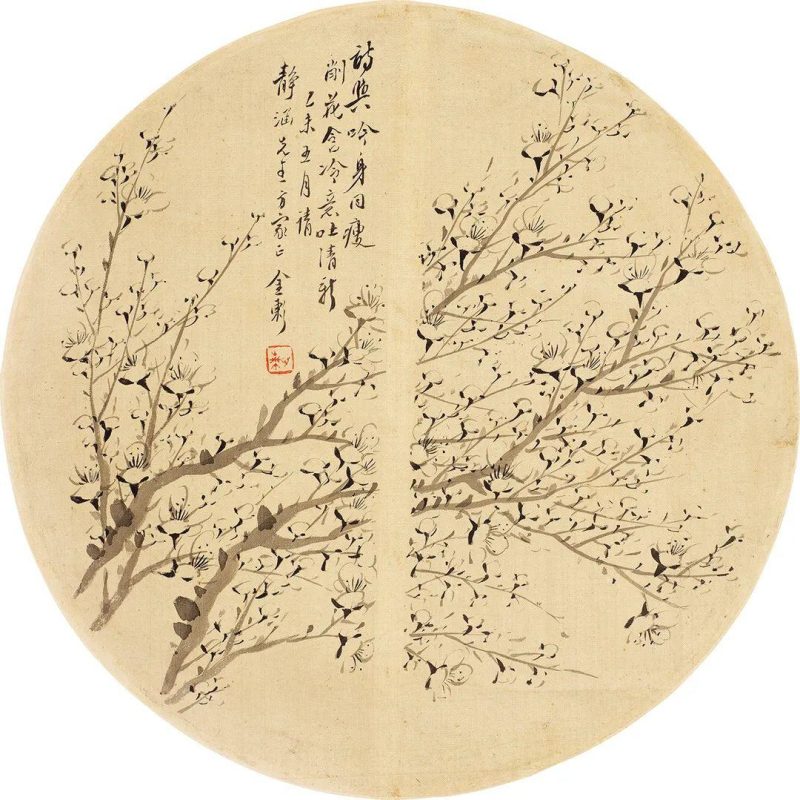 詩與吟身同瘦
削花含冷意吐清新
己未五月請
靜涵先生方家正 金